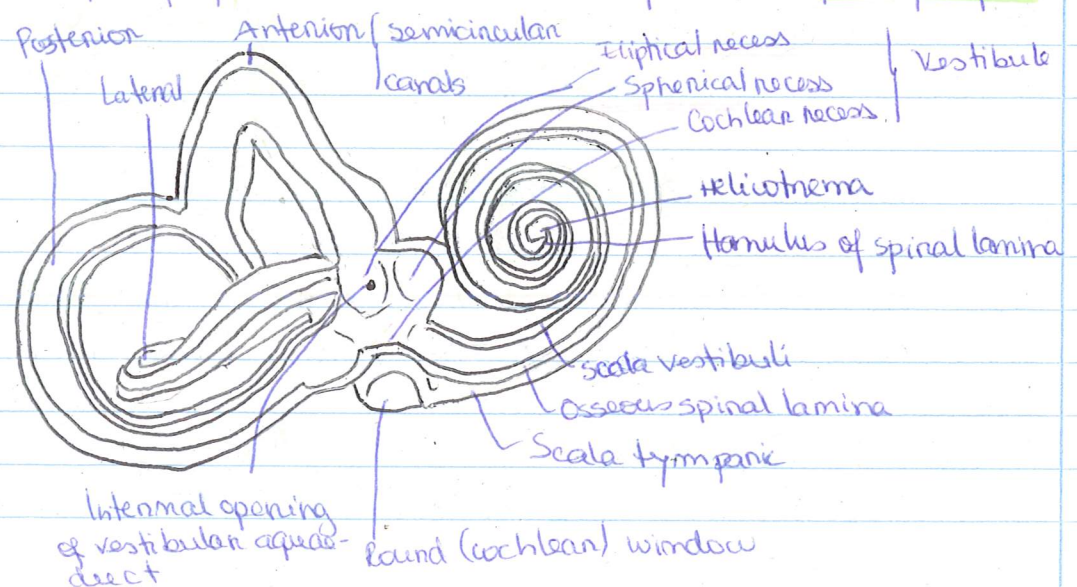 Posterior
Anterior
semicircular
canals
Lateral
Eliptical recess
Spherical recess
Cochlear recess.
Vestibule
Helicotrema
Hamulus of spiral lamina
Scala vestibuli
Osseous spiral lamina
Scala tympani
Internal opening
of vestibular aquae-
duct
Round (cochlear) window